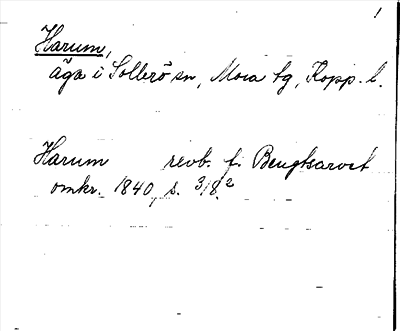 1
Harum,
äga i Sollerö sn, Mora tg, Kopp. l.
Harum revb. f. Bengtsarvet
omkr. 1840, s. 318.2